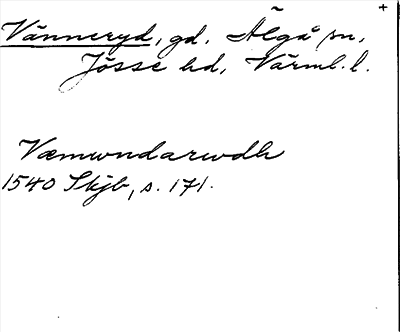 +
Vänneryd, gd, Älgå sn,
Jösse hd, Värml. l.
Væmwndarwdh
1540 Skjb, s. 171.